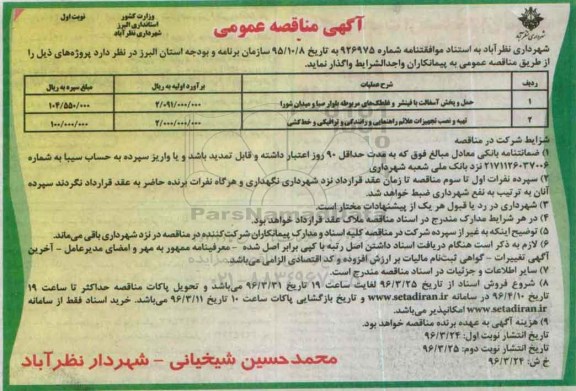 آگهی مناقصه عمومی
نوبت اول
وزارت کشور
استانداری البرز
شهرداری نظرآباد
شهرداری نظرآباد به استناد موافقتنامه شماره ۹۲۶۹۷۵ به تاریخ ۹۵/۱۰/۸ سازمان برنامه و بودجه استان البرز در نظر دارد پروژه‌های ذیل را
از طریق مناقصه عمومی به پیمانکاران واجدالشرایط واگذار نماید.
ردیف شرح عملیات برآورد اولیه به ریال مبلغ سپرده به ریال
۱ حمل و پخش آسفالت با فینشر و غلطک‌های مربوطه بلوار صبا و میدان شورا ۲/۰۹۱/۰۰۰/۰۰۰ ۱۰۴/۵۵۰/۰۰۰
۲ تهیه و نصب تجهیزات علائم راهنمایی و رانندگی و ترافیکی و خط‌کشی ۲/۰۰۰/۰۰۰/۰۰۰ ۱۰۰/۰۰۰/۰۰۰
شرایط شرکت در مناقصه
۱) ضمانتنامه بانکی معادل مبالغ فوق که به مدت حداقل ۹۰ روز اعتبار داشته و قابل تمدید باشد و یا واریز سپرده به حساب سیبا به شماره
۲۱۷۱۱۲۶۰۳۷۰۰۶ نزد بانک ملی شعبه شهرداری
۲) سپرده نفرات اول تا سوم مناقصه تا زمان عقد قرارداد نزد شهرداری نگهداری و هرگاه نفرات برنده حاضر به عقد قرارداد نگردند سپرده
آنان به ترتیب به نفع شهرداری ضبط خواهد شد.
۳) شهرداری در رد یا قبول هر یک از پیشنهادات مختار است.
۴) در هر شرایط مدارک مندرج در اسناد مناقصه ملاک عقد قرارداد خواهد بود.
۵) توضیح اینکه به غیر از سپرده شرکت در مناقصه کلیه اسناد و مدارک پیمانکاران شرکت‌کننده در مناقصه در نزد شهرداری باقی می‌ماند.
۶) لازم به ذکر است هنگام دریافت اسناد داشتن اصل رتبه با کپی برابر اصل شده - معرفینامه ممهور به مهر و امضای مدیرعامل - آخرین
آگهی تغییرات - گواهی ثبت‌نام مالیات بر ارزش افزوده و کد اقتصادی الزامی می‌باشد.
۷) سایر اطلاعات و جزئیات در اسناد مناقصه مندرج است.
۸) شروع فروش اسناد از تاریخ ۹۶/۳/۲۵ لغایت ساعت ۱۹ تاریخ ۹۶/۳/۳۱ می‌باشد و تحویل پاکات مناقصه حداکثر تا ساعت ۱۹
تاریخ ۹۶/۴/۱۰ در سامانه www.setadiran.ir و تاریخ بازگشایی پاکات ساعت ۱۰ تاریخ ۹۶/۳/۱۱ می‌باشد. خرید اسناد فقط از سامانه
www.setadiran.ir امکانپذیر می‌باشد.
۹) هزینه آگهی به عهده برنده مناقصه خواهد بود.
تاریخ انتشار نوبت اول: ۹۶/۳/۲۴
تاریخ انتشار نوبت دوم: ۹۶/۳/۲۵
خ ش: ۹۶/۳/۲۴
محمدحسین شیخیانی - شهردار نظرآباد